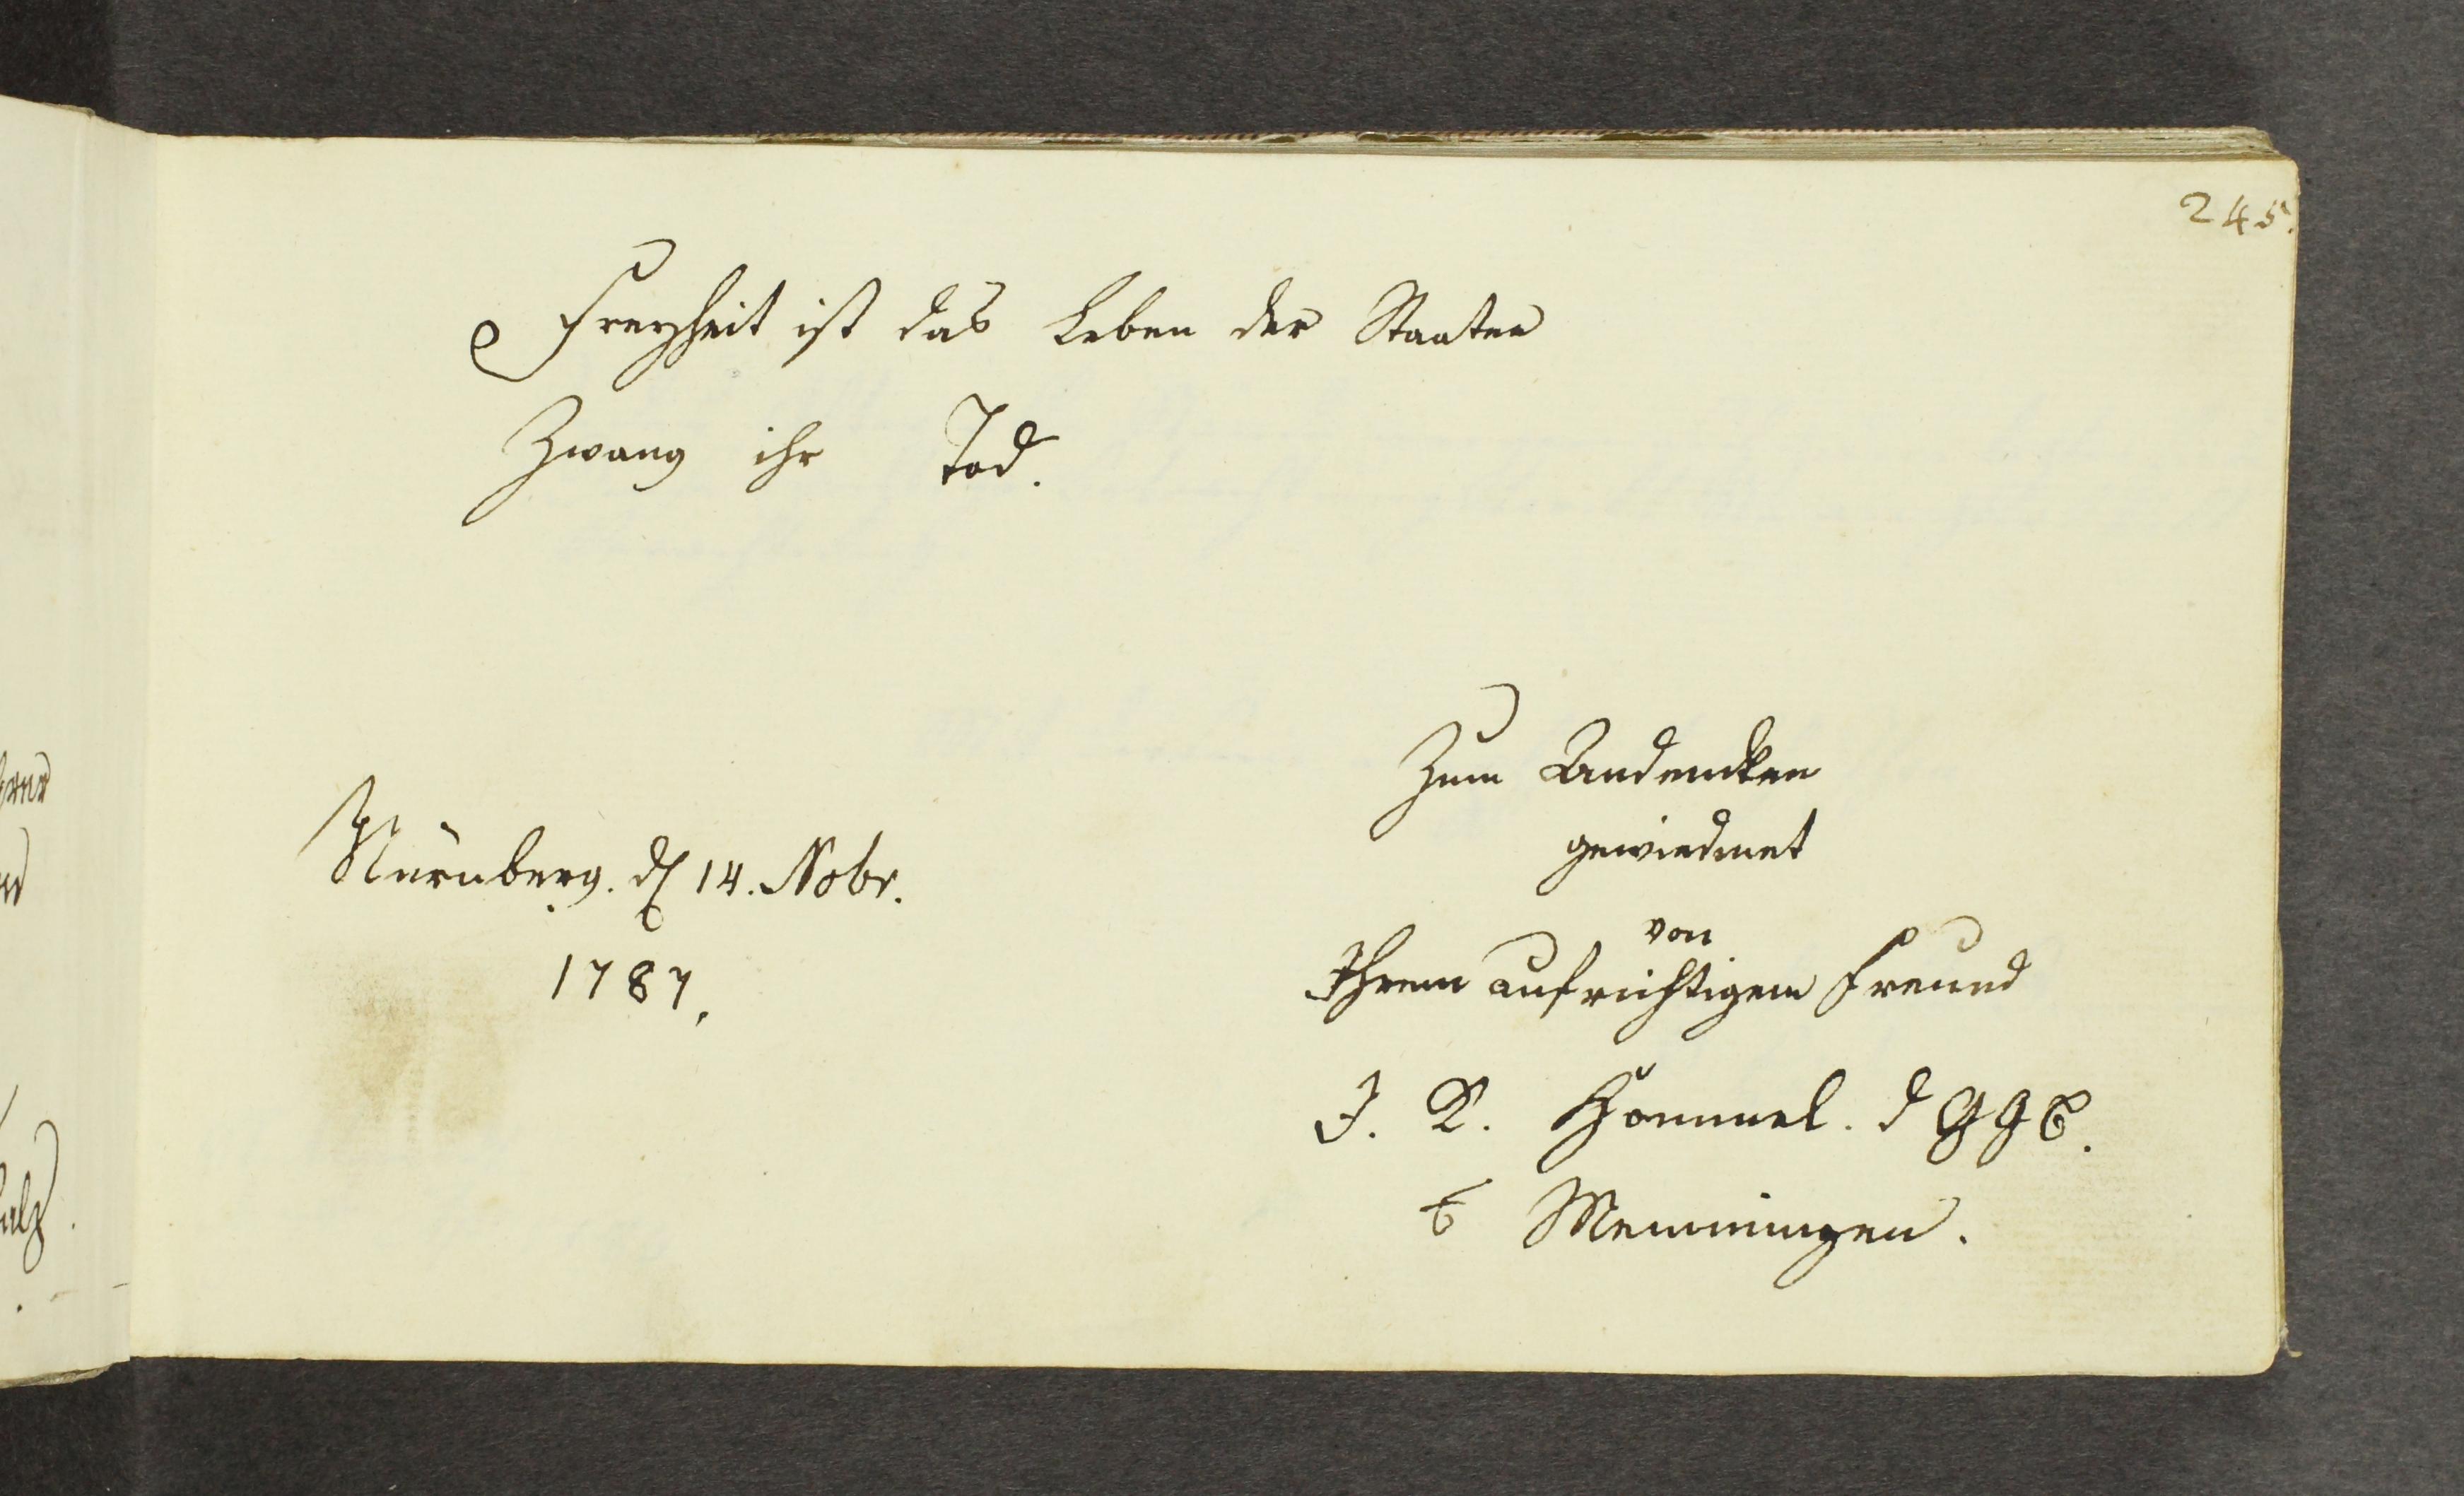 245.
Freyheit ist das Leben der Staaten
Zwang ihr Tod.
Nürnberg. d 14. Nobr.
1787.
Zum Andencken
gewiedmet
von
Ihrem aufrichtigem Freund
J. K. Hommel. d G G B.
Memmingen.